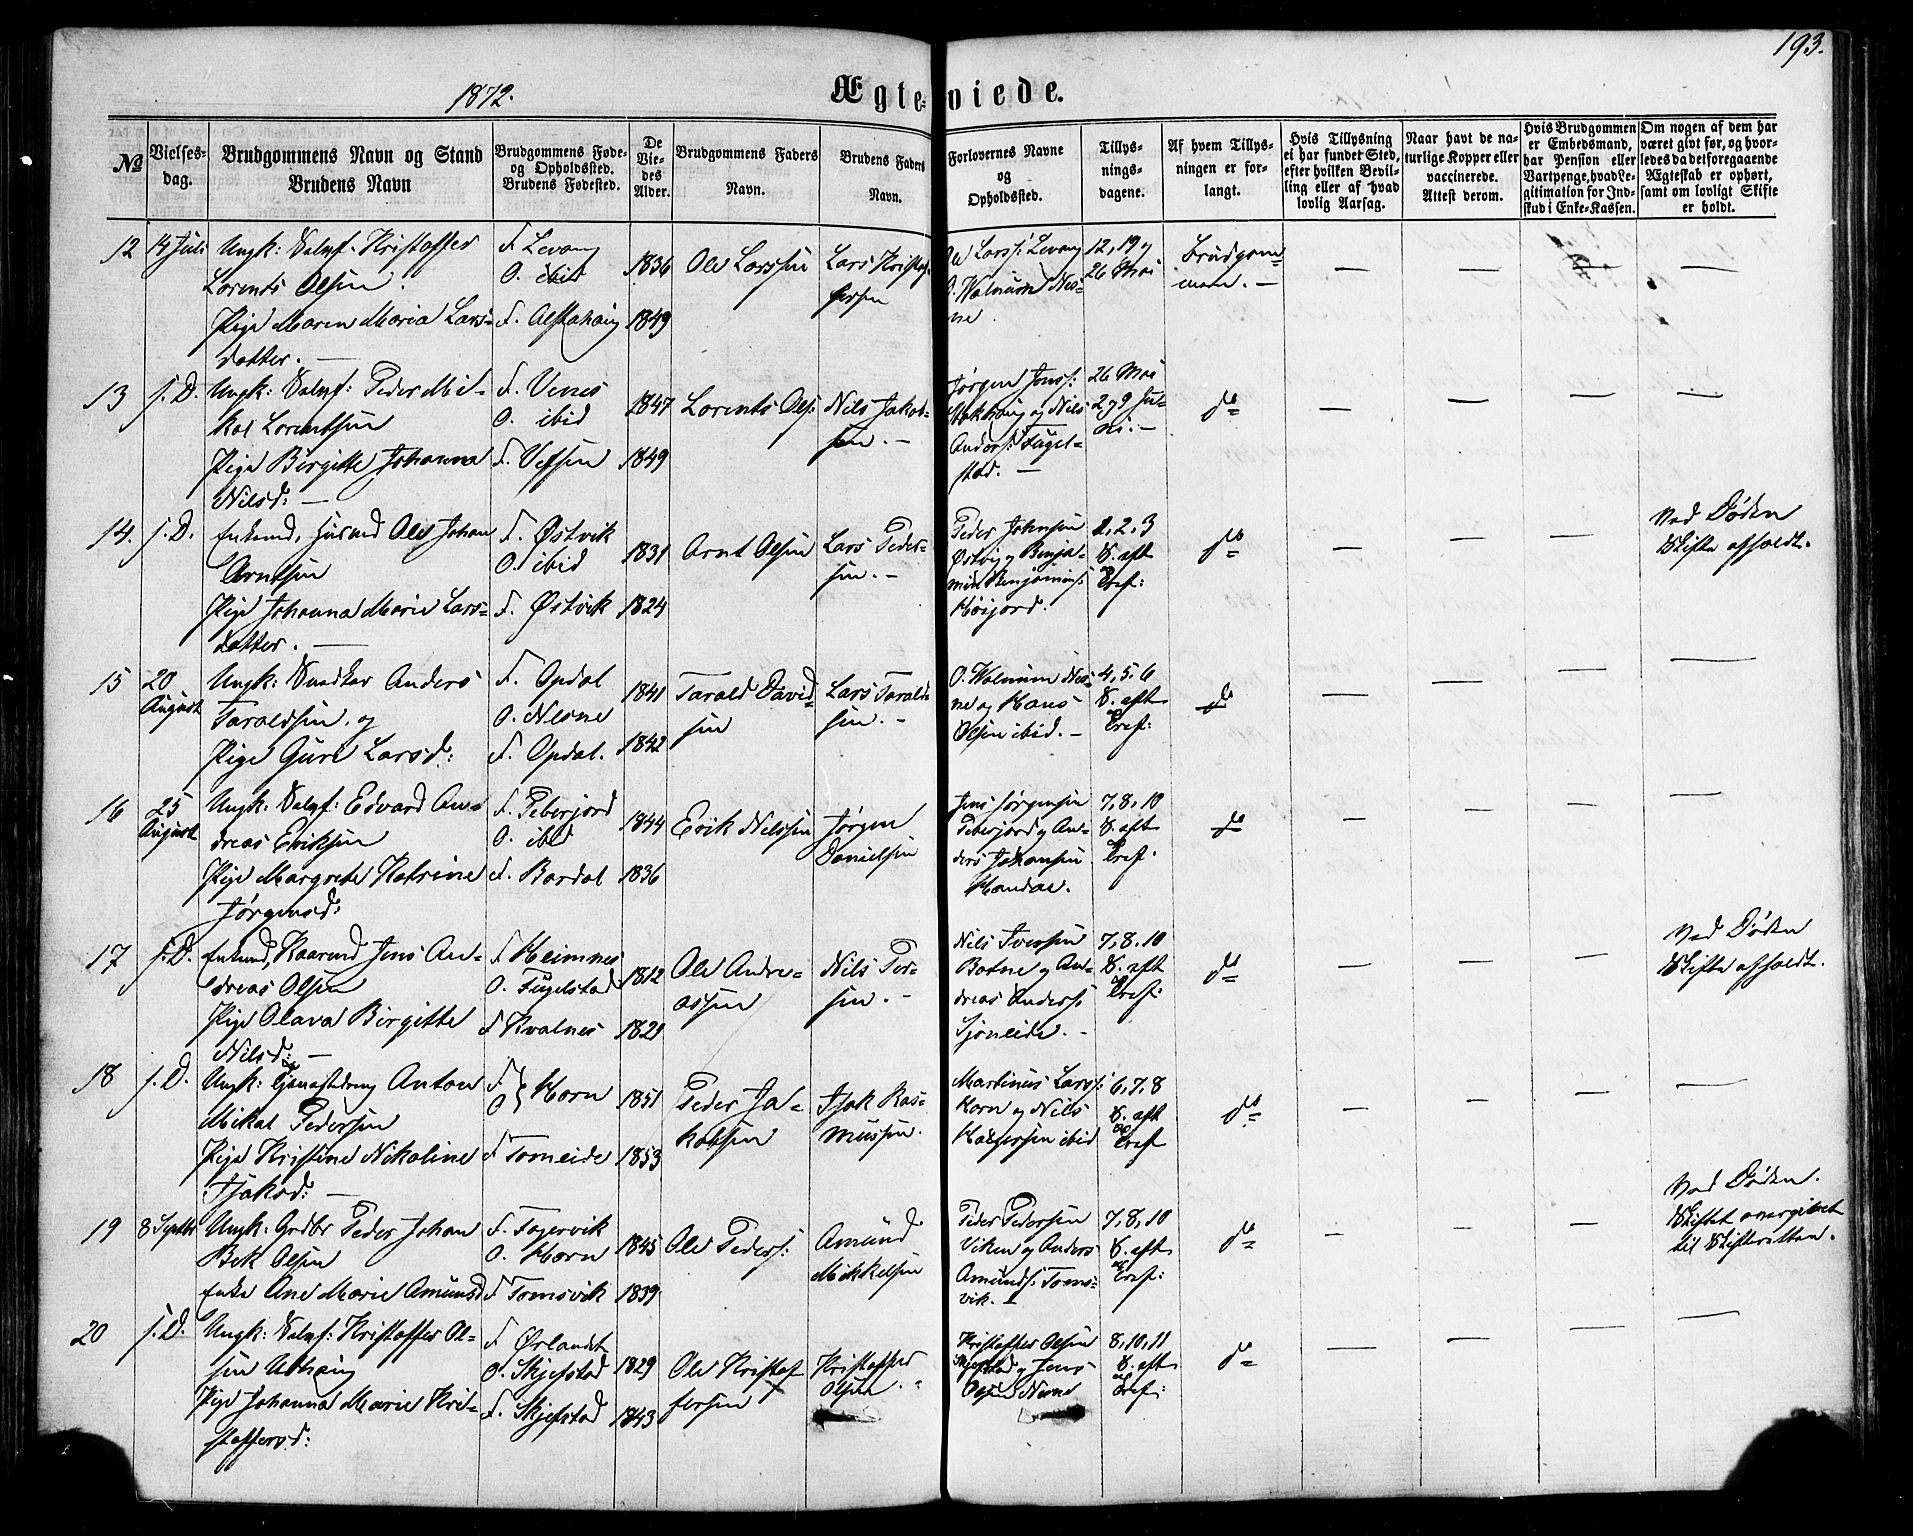 193.
1872.
Ægteviede.
№
Vielses-
dag.
Brudgommens Navn og Stand
Brudens Navn
Brudgommens Føde-
og Opholdssted.
Brudens Fødested.
De
Vie-
des
Alder.
Brudgommens Faders
Navn.
Brudens Faders
Navn.
Forlovernes Navne
og
Opholdssted.
Tillys-
nings-
dagene.
Af hvem Tillys-
ningen er for-
langt.
Hvis Tillysning
ei har fundet Sted,
efter hvilken Bevil-
ling eller af hvad
lovlig Aarsag.
Naar havt de na-
turlige Kopper eller
vaccinerede.
Attest derom.
Hvis Brudgommen
er Embedsmand,
har Pension eller
Vartpenge, hvad Le-
gitimation for Ind-
skud i Enke-Kassen.
Om nogen af dem har
været givt før, og hvor-
ledes da det foregaaende
Ægteskab er ophørt,
samt om lovligt Skifte
er holdt.
12 14 Juli
Ungk: Selvf. Kristoffer
Lorents Olsen.
Pige Maren Maria Lars-
datter. —
F. Levang
O. ibid
F. Alstahaug
1836
1849
Ole Larssen
Lars Kristof-
fersen
Ol Larss: Levang
O. Walnum Nes-
ne.
12, 19 og
26 Mai
Brudgom-
men. —
— — — —
13 s. D.
Ungk: Selvf: Peder Mi-
kal Lorentsen
Pige Birgitte Johanna
Nilsd: —
F. Venes
O. ibid
F. Vefsen
1847
1849
Lorents Ols:
Nils Jakob-
sen. —
Jørgen Jonss:
Stokhaug og Nils
Anders: Fugel-
stad. —
26 Mai
2 og 9 Ju-
ni. —
do
— — — —
14. s. D.
Enkemd, Husmd Ole Johan
Arntsen
Pige Johanna Marie Lars-
datter. —
F. Østvik
O. ibid
F. Østvik
1831
1824
Arnt Olsen
Lars Peder-
sen. —
Peder Johnsen
Østvig og Benja-
min Benjamins:
Høijord.
1, 2, 3
S. eft
Tref:
do
— — —
Ved Døden
Skifte afholdt.
15 20
August
Ungk: Snedker Anders
Taraldsen, og
Pige Guri Larsd:
F. Opdal
O. Nesne
F. Opdal.
1841
1842
Tarald David-
sen
Lars Tarald-
sen. —
O. Walnum Nes-
ne og Hans
Olsen ibid. —
4, 5, 6
S. eft
Tref:
do
— — — —
16 25
August
Ungk: Selvf: Edvard An-
dreas Eriksen
Pige Margrete Katrine
Jørgensd:
F. Teberjord
O. ibid
F. Bardal
1844
1836
Erik Nilssen
Jørgen
Danielsen
Jens Jørgensen
Teberjord og An-
ders Johansen
7, 8, 10
S. eft
Tref.
do
— — — —
17 s. D.
Enkemd, Kaarmd Jens An-
dreas Olsen
Pige Olava Birgitte
Nilsd: —
F. Heimnes
O. Fugelstad
F. Kvalnes
1812
1821
Ole Andre-
assen
Nils Per-
sen. —
Nils Iversen
Botne og An-
dreas Anderss:
Sjoneide. —
7, 8, 10
S. eft
Tref:
do
— — —
Ved Døden
Skifte afholdt.
18 s. D.
Ungk: Tjenestedreng Anton
Mikal Pedersen
Pige Kristine Nikoline
Isaksd: —
F. } Horn
O.
F. Tomeide
1851
1853
Peder Ja-
kobsen
Isak Ras-
mussen.
Martinus Larss:
Horn og Nils
Holgersen ibid
6, 7, 8
S. eft
Tref
do
— — — —
19 8 Septbr
Ungk: Grdbr Peder Johan
Bek Olsen
Enke Ane Marie Amunsd
F. Fagervik
O. Horn
F. Tomsvik
1845
1839
Ole Peders:
Amund
Mikkelsen
Peder Pedersen
Viken og Anders
Amunds: Toms-
vik.
7, 8, 10
S. eft
Tref:
do
— — —
Ved Døden.
Skiftet overgivet
til Skifteretten.
20 s. D.
Ungk: Selvf: Kristoffer Ol-
sen Uthaug
Pige Johanna Marie Kri-
stoffersd:
F. Ørlandt
O. Skjefstad
F. Skjefstad
1829
1843
Ole Kristof
fersen
Kristoffer
Olsen. "
Kristoffer Olsen
Skjefstad og Jens
Olsen
8, 10, 11
S. eft
Tref:
do
— — — —